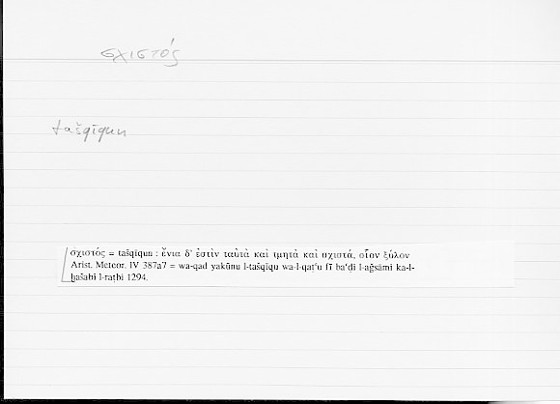 σχιστός
tašqīqun
σχιστός = tašqīqun : ἔνια δ' ἐστὶν ταὐτὰ καὶ τμητὰ καὶ σχιστά, οἷον ξύλον
Arist. Meteor. IV 387a7 = wa-qad yakūnu l-tašqīqu wa-l-qaṭ‘u fī ba‘ḍi l-aǧsāmi ka-l-
ḫašabi l-raṭbi 1294.